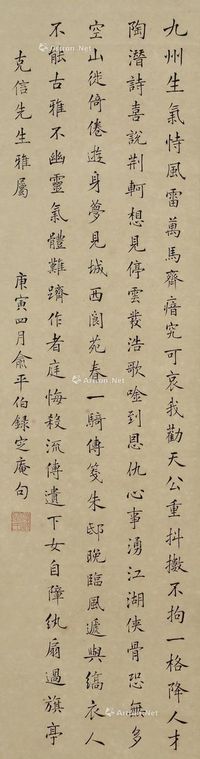 九州生氣恃風雷萬馬齊瘖究可哀我勸天公重抖擻不拘一格降人才
陶潛詩喜說荊軻想見停雲發浩歌唫到恩仇心事湧江湖俠骨恐無多
空山徙倚倦遊身夢見城西閬苑春一騎傳箋朱邸晚臨風遞與縞衣人
不能古雅不幽靈氣體難躋作者庭悔殺流傳遺下女自障紈扇過旗亭
克信先生雅屬
庚寅四月俞平伯錄定庵句